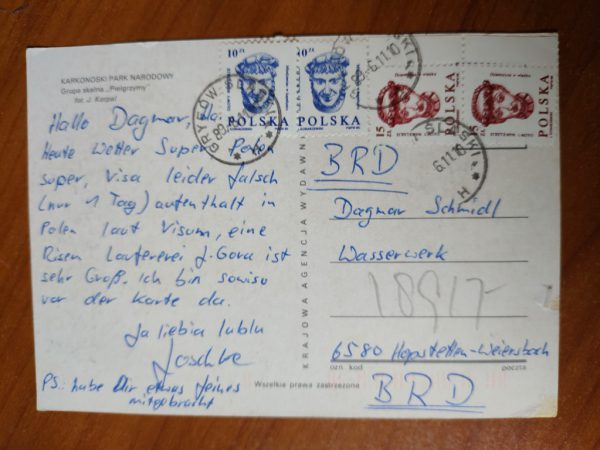 KARKONOSKI PARK NARODOWY
Grupa skalna „Pielgrzymy"
fot. J. Korpal
Hallo Dagmar
Heute Wetter Super Polen
super, Visa leider falsch
(nur 1 Tag) aufenthalt in
Polen laut Visum, eine
Risen Lauferei J. Gora ist
sehr Groß. Ich bin sowiso
vor der Karte da.
Ja liebia lublu
Joschke
PS.: habe Dir etwas feines
mitgebracht
10 ZŁ
POLSKA
10 ZŁ
POLSKA
15 ZŁ
POLSKA
15 ZŁ
POLSKA
GRYFÓW ŚLĄSKI
89-6.11.10
6.11.10
KRAJOWA AGENCJA WYDAWN
BRD
Dagmar Schmidl
Wasserwerk
18917
6580 Hopstetten-Weiersbach
ozn. kod
poczta
BRD
Wszelkie prawa zastrzeżone